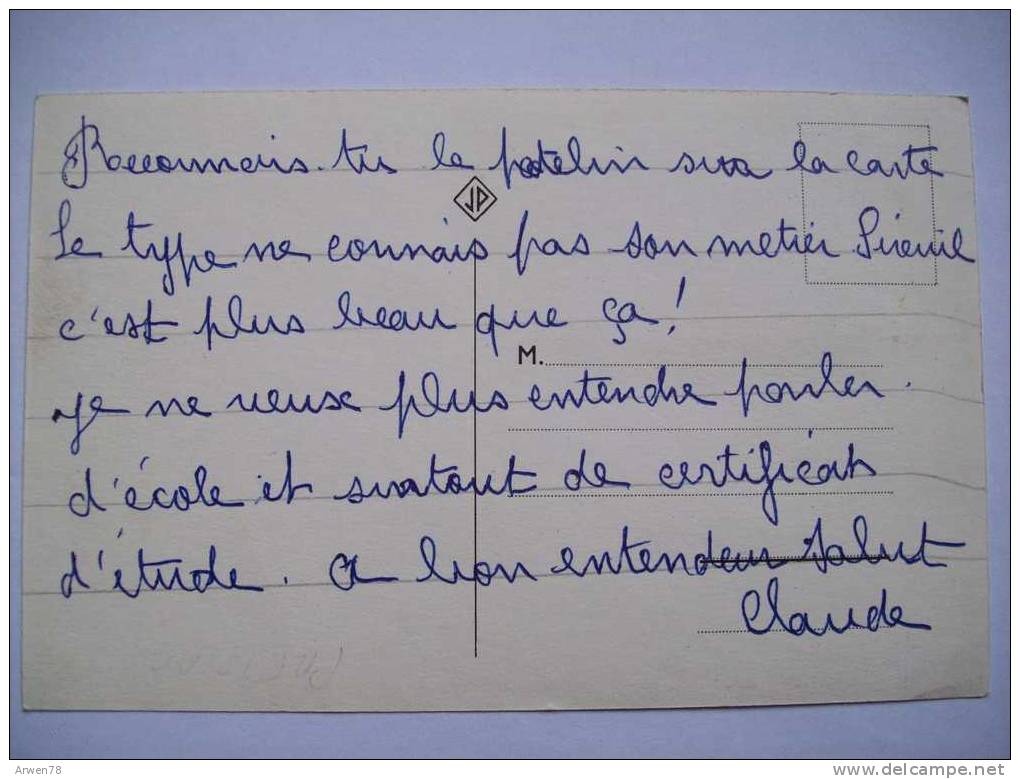 Reconnais-tu le patelin sur la carte
JD
Le type ne connais pas son metier Sireuil
c'est plus beau que ça!
M.
je ne veuse plus entendre parler
d'école et surtout de certificat
d'étude. a bon entendeur salut
Claude
Arwen78
delcampe.net